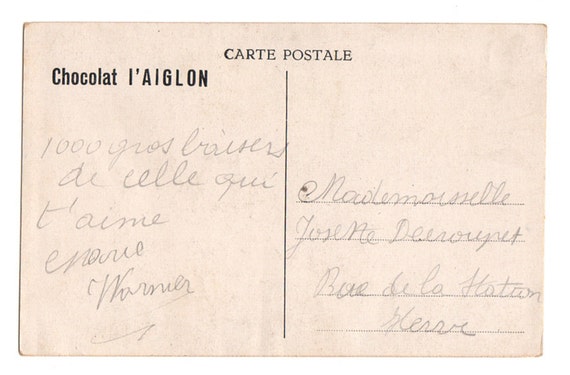 CARTE POSTALE
Chocolat l'AIGLON
1000 gros baisers
de celle qui
t'aime
Marie
Warnier
Mademoiselle
Josette Decroupet
Rue de la Station
Herve